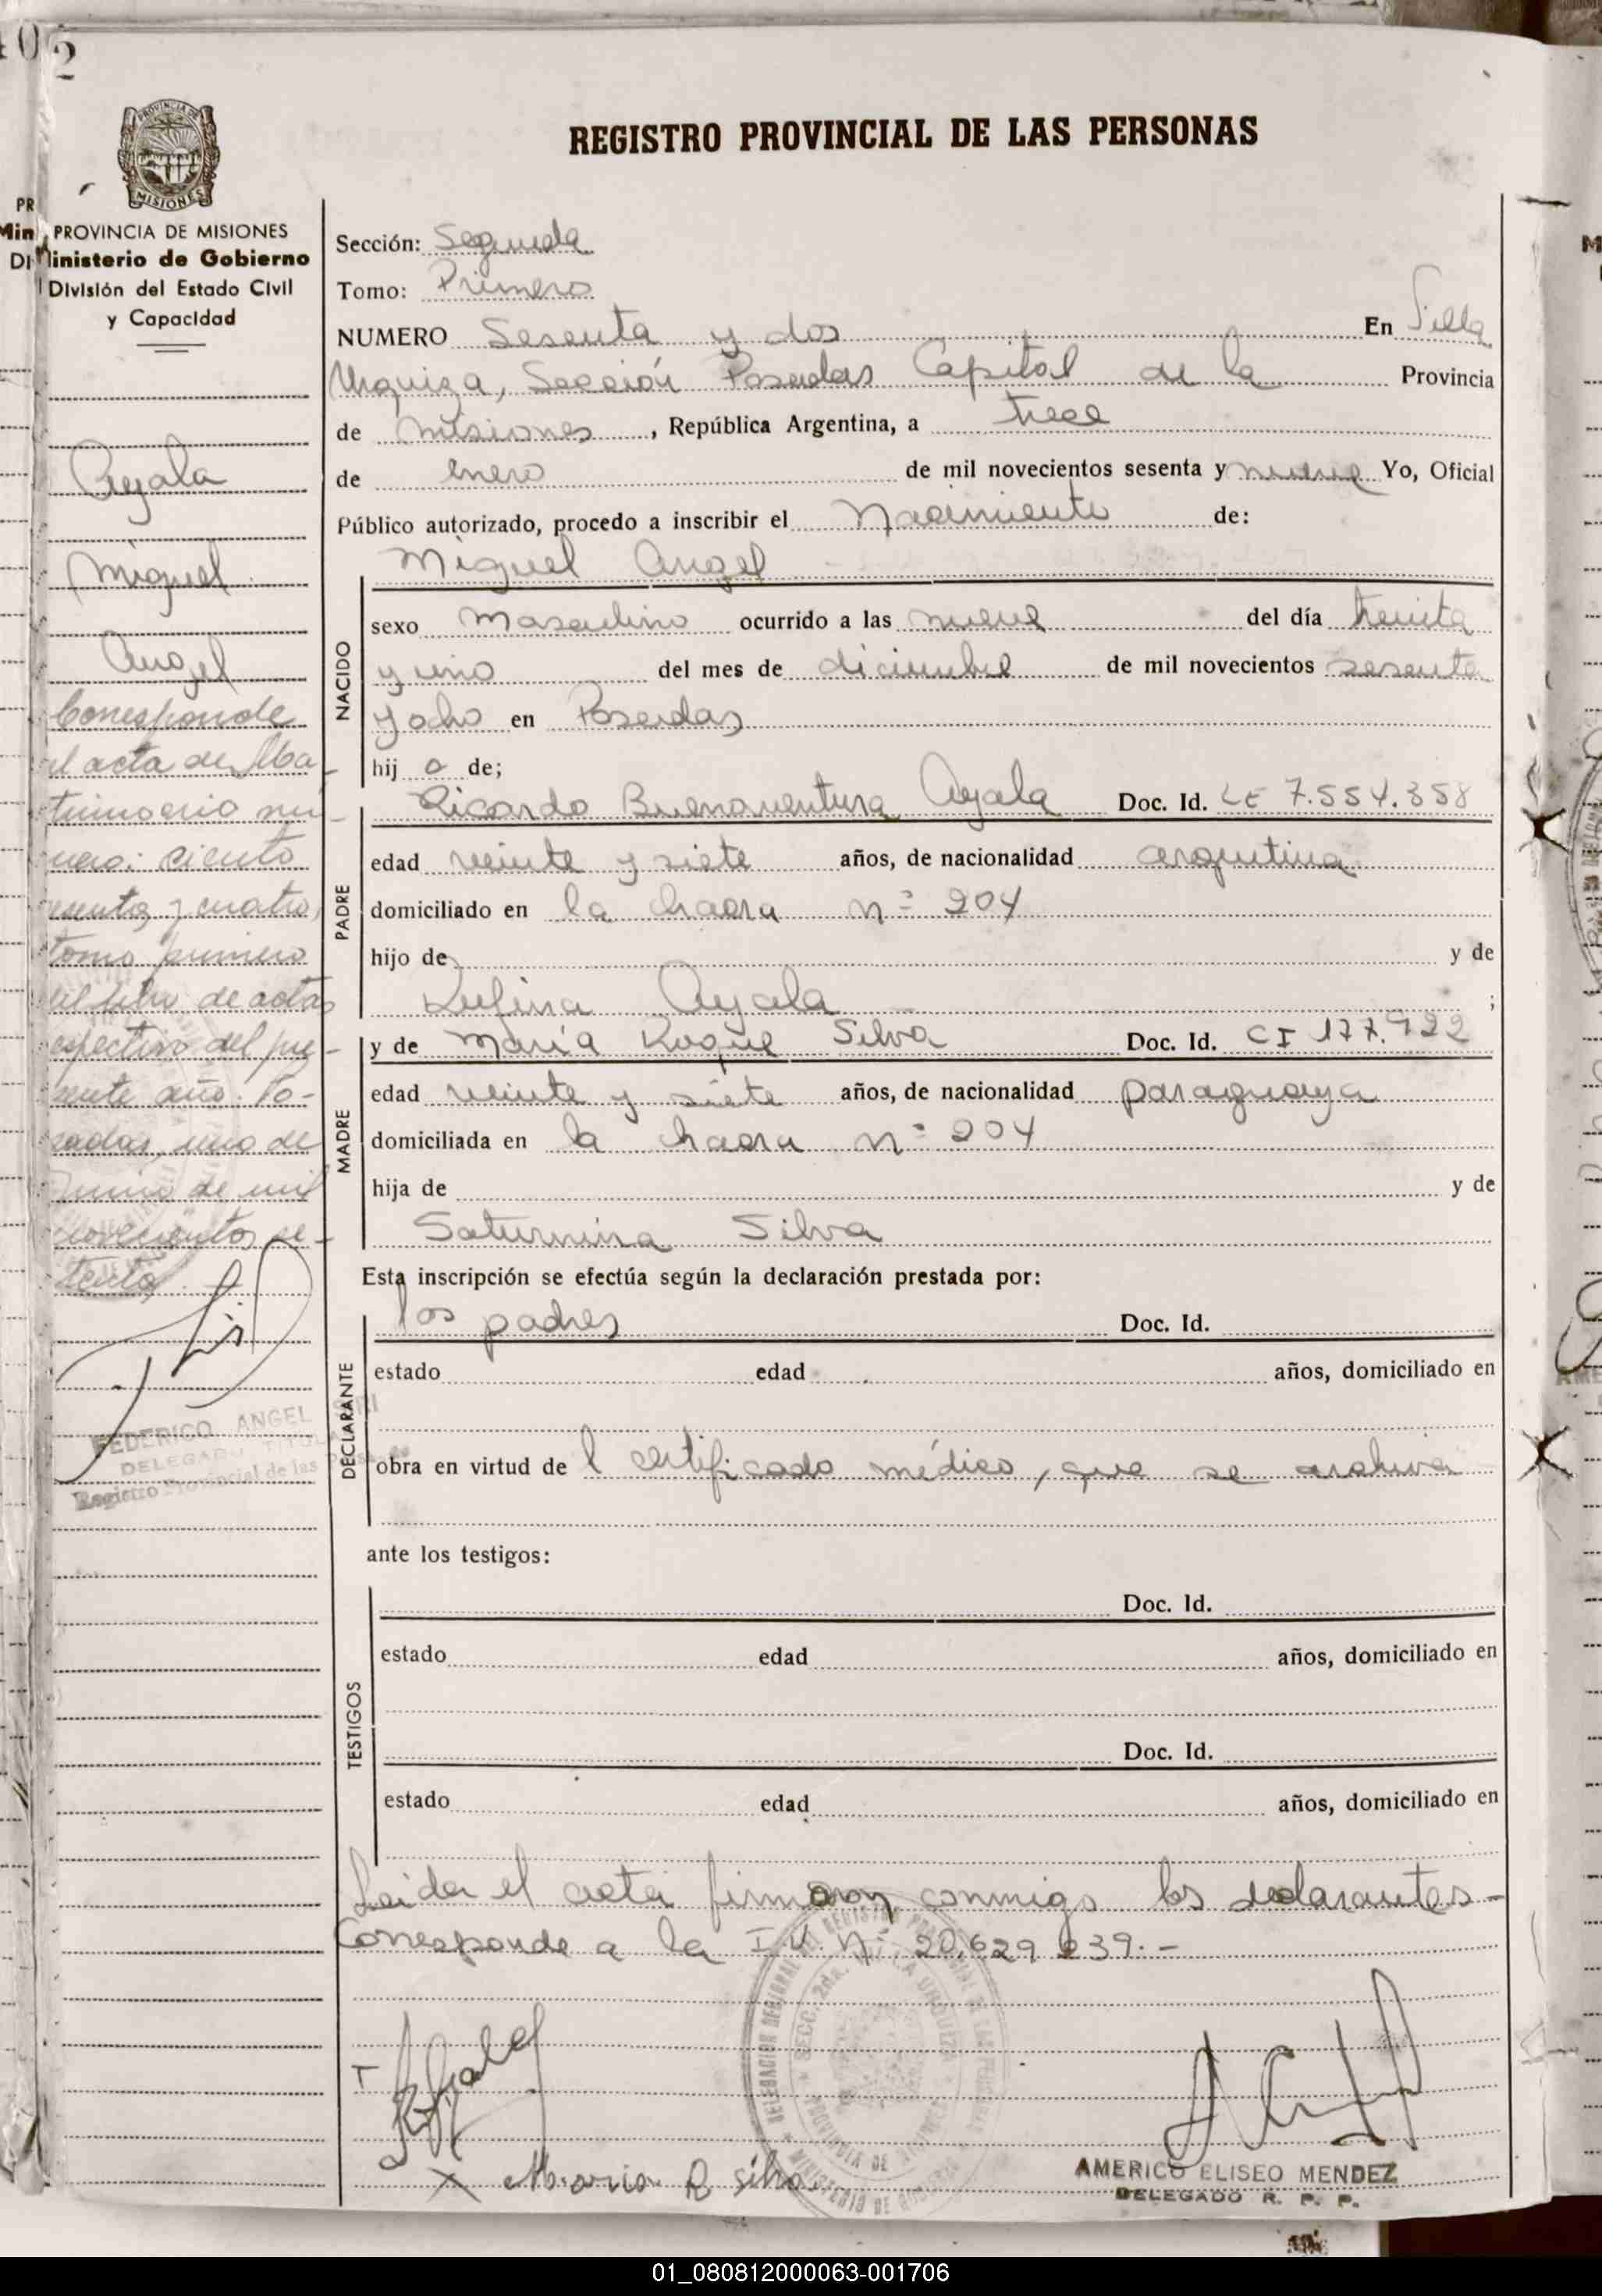 402
REGISTRO PROVINCIAL DE LAS PERSONAS
MISIONES
PROVINCIA DE MISIONES
Ministerio de Gobierno
División del Estado Civil
y Capacidad
Ayala
Miguel
Angel
Corresponde
el acta de Ma-
trimonio nú-
mero: ciento
sesenta y cuatro,
tomo primero
del libro de actas
respectivo del pre-
sente año. Po-
sadas, uno de
Junio de mil
novecientos se-
tenta
FEDERICO ANGEL
DELEGADO TITULAR
Registro Provincial de las
Sección: Segunda
Tomo: Primero
NUMERO Sesenta y dos En Villa
Urquiza, Sección Posadas Capital de la Provincia
de Misiones, República Argentina, a trece
de enero de mil novecientos sesenta y nueve Yo, Oficial
Público autorizado, procedo a inscribir el Nacimiento de:
Miguel Angel
NACIDO
sexo Masculino ocurrido a las nueve del día treinta
y uno del mes de diciembre de mil novecientos sesenta
y ocho en Posadas
hij o de;
PADRE
Ricardo Buenaventura Ayala Doc. Id. LE 7.554.358
edad veinte y siete años, de nacionalidad argentina
domiciliado en la chacra nº 204
hijo de y de
Rufina Ayala ;
MADRE
y de María Roque Silva Doc. Id. CI 177.922
edad veinte y siete años, de nacionalidad paraguaya
domiciliada en la chacra nº 204
hija de y de
Saturnina Silva
Esta inscripción se efectúa según la declaración prestada por:
DECLARANTE
los padres Doc. Id.
estado edad años, domiciliado en
obra en virtud de l certificado médico, que se archiva
ante los testigos:
TESTIGOS
Doc. Id.
estado edad años, domiciliado en
Doc. Id.
estado edad años, domiciliado en
Leida el acta firmaron conmigo los declarantes-
Corresponde a la I.U. Nº 20.629.639.-
X Maria R Silva
AMERICO ELISEO MENDEZ
DELEGADO R. P. P.
01_080812000063-001706